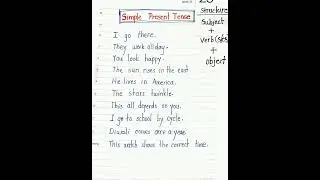 Simple Present Tense
I go there.
They work all day.
You look happy.
The sun rises in the east
He lives in America.
The stars twinkle.
This all depends on you.
I go to school by cycle.
Diwali comes once a year.
This watch shows the correct time.
Structure
Subject
+
verb (s/es)
+
object